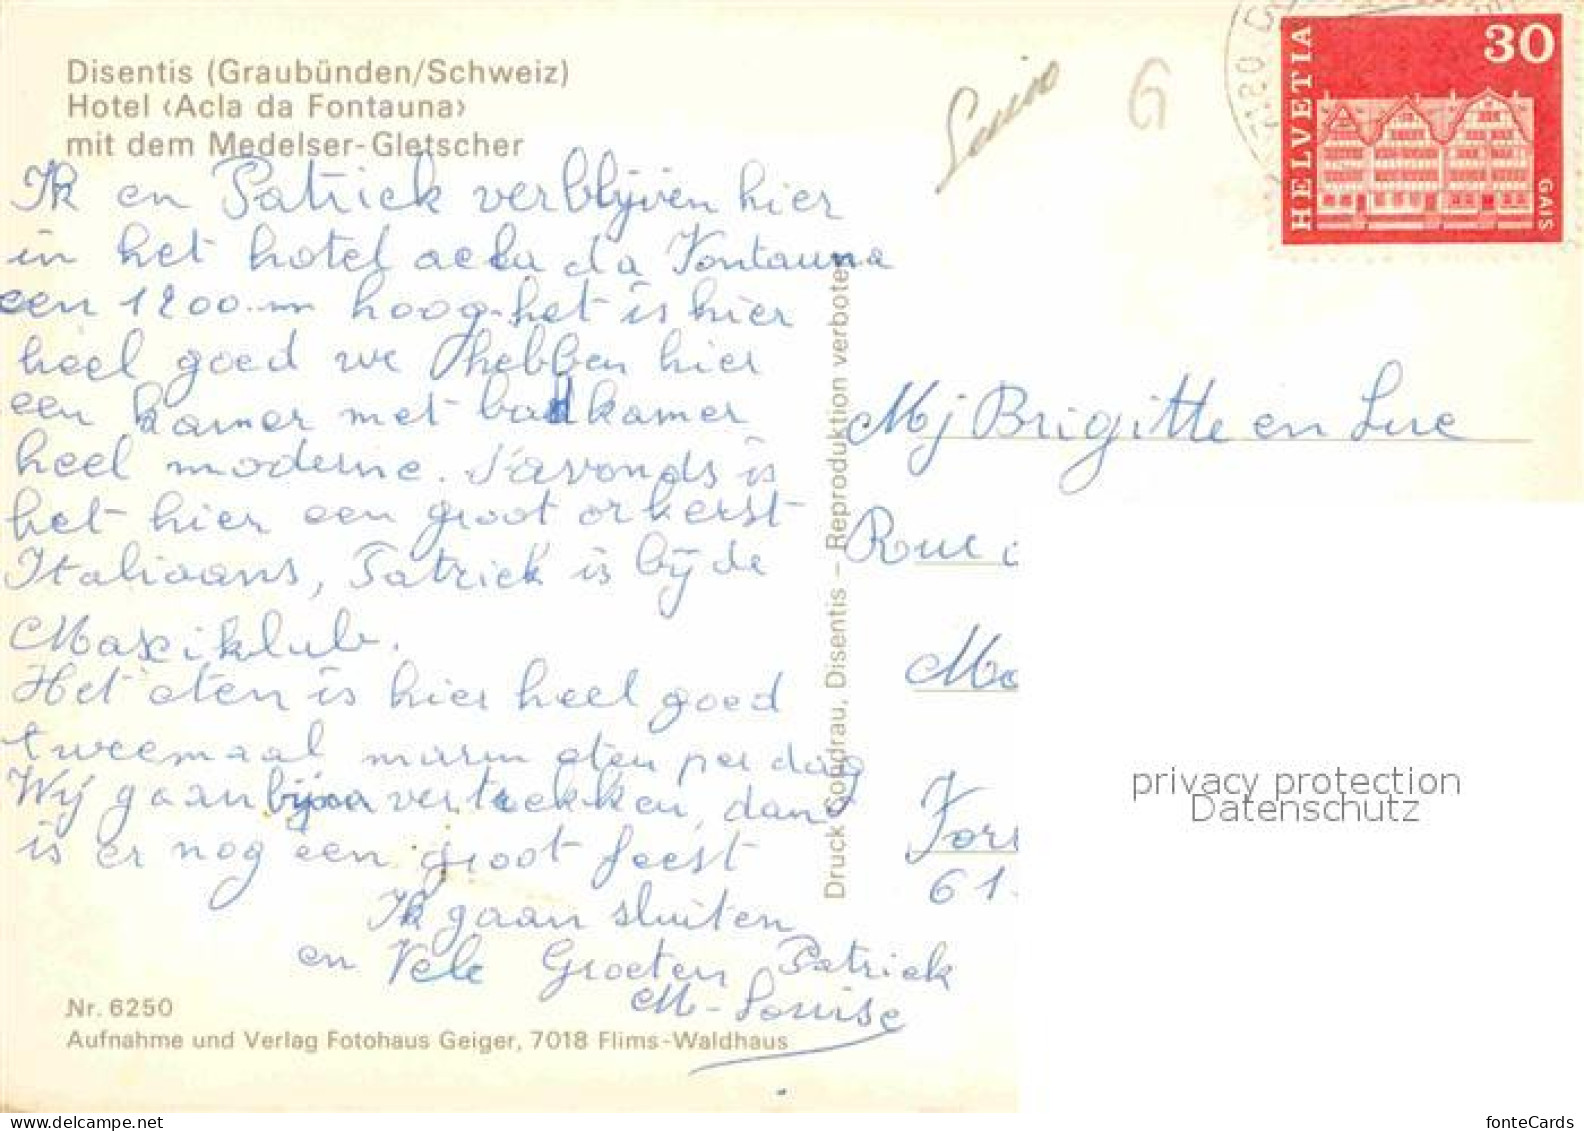 Disentis (Graubünden/Schweiz)
Hotel ‹Acla da Fontauna›
mit dem Medelser-Gletscher
Ik en Patrick verblijven hier
in het hotel acla da Fontauna
een 1200 m hoog. het is hier
heel goed we hebben hier
een kamer met badkamer
heel moderne. S'avonds is
het hier een groot orkerst
Italiaans, Patrick is bij de
Maxiklub.
Het eten is hier heel goed
tweemaal warm eten per dag
Wij gaan bijna vertrekken, dan
is er nog een groot feest
Ik gaan sluiten
en Vele Groeten Patrick
M-Louise
Nr. 6250
Aufnahme und Verlag Fotohaus Geiger, 7018 Flims-Waldhaus
Druck Condrau, Disentis – Reproduktion verboten
G
HELVETIA
30
GAIS
Mj Brigitte en Luc
Rue
Mo
For
61
privacy protection
Datenschutz
fonteCards